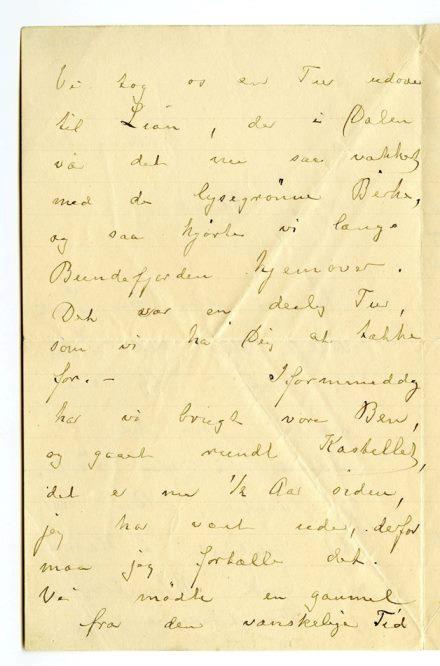 Vi tog os en Tur udover
til Liän, der i Dalen
var det nu saa vakkert
med de lysegrønne Birke,
og saa kjørte vi langs
Bundefjorden hjemover.
Det var en deilig Tur,
som vi har Dig at takke
for. – Iformiddag
har vi brugt vore Ben,
og gaaet rundt Kastellet,
det er nu 1/2 Aar siden,
jeg har vært ude, derfor
maa jeg fortælle det.
Vi mødte en gammel
fra den vanskelige Tid